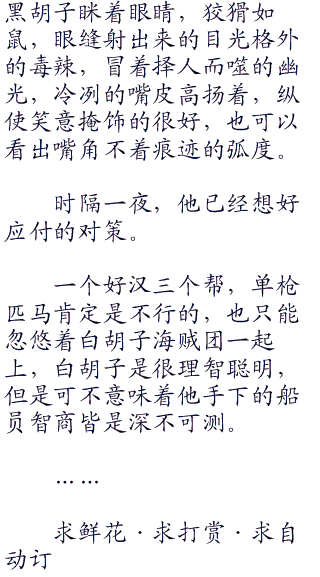 黑胡子眯着眼睛，狡猾如
鼠，眼缝射出来的目光格外
的毒辣，冒着择人而噬的幽
光，冷冽的嘴皮高扬着，纵
使笑意掩饰的很好，也可以
看出嘴角不着痕迹的弧度。
时隔一夜，他已经想好
应付的对策。
一个好汉三个帮，单枪
匹马肯定是不行的，也只能
忽悠着白胡子海贼团一起
上，白胡子是很理智聪明，
但是可不意味着他手下的船
员智商皆是深不可测。
……
求鲜花·求打赏·求自
动订